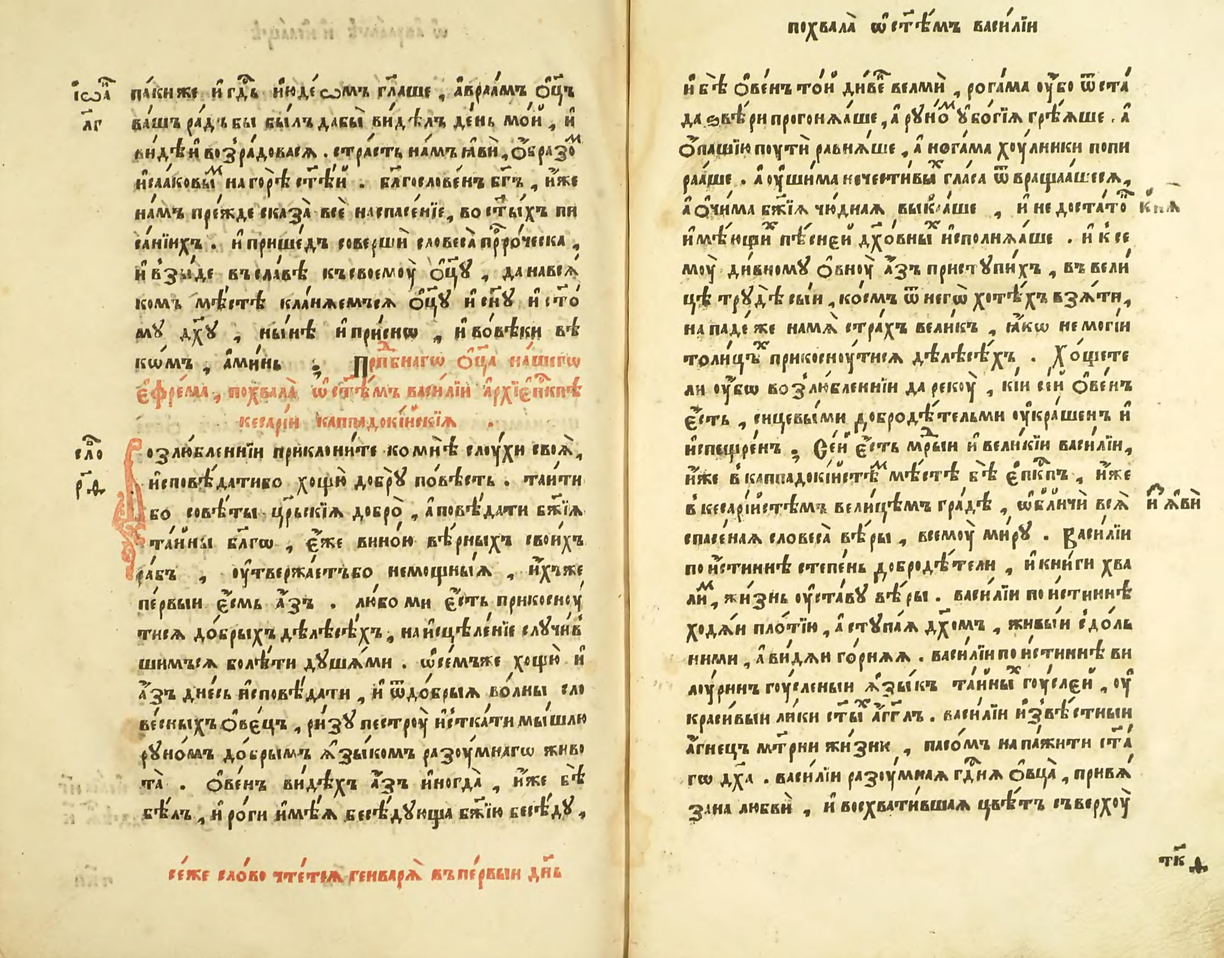 іѡа҃ па́киже и҆ гд҇ь и҆ꙋде́ѡмъ гл҃аше , а҆враа́мъ ѻ҆ц҃ъ
л҃г ва́шъ ра́дъ бы бы́лъ дабы̀ ви́дѣлъ де́нь мо́й , и҆
ви́дѣ и҆ возра́довася . стра́сть на́мъ ꙗ҆вѝ , ѻ҆́бразоⷨ
и҆саа́ковыⷨ на горѣ̀ ст҃ѣ́й . бл҃гослове́нъ бг҃ъ , и҆́же
на́мъ пре́жде сказа̀ всѐ на спасе́нїе , во ст҃ы́хъ пи
са́нїихъ . и҆ прише́дъ совершѝ словеса̀ прⷪ҇ро́ческа ,
и҆ взы́де въ сла́вѣ къ своемоу̀ ѻ҆ц҃ꙋ , да на вся́
комъ мѣ́стѣ кла́няемъся ѻ҆ц҃ꙋ и҆ сн҃ꙋ и҆ ст҃о́
мꙋ дх҃ꙋ , ны́нѣ и҆ при́снѡ , и҆ во вѣ́ки вѣ
кѡ́мъ , а҆ми́нь : Прпⷣбнагѡ ѻ҆ц҃а на́шегѡ
є҆фре́ма , похвала̀ ѡ҆ ст҃ѣ́мъ васи́лїи а҆рхїєпⷭ҇кпѣ
кесарі́и каппадокі́йскїя .
сло҃ Возлю́бленнїи приклони́те ко мнѣ̀ слоу́хи своѧ̀ ,
р҃.ѳ и҆сповѣ́дати бо хощю̀ до́брꙋ по́вѣсть . таи́ти
бо совѣ́ты цр҃ьскїя добро̀ , а повѣ́дати бж҃їя
та́йны бл҃го , є҆́же вино́ю вѣ́рныхъ свои́хъ
ра́бъ , оу҆твержа́етъ бо немощны́я , и҆́хъ же
пе́рвыи є҆́смь а҆́зъ . любо́ ми є҆́сть прикосноу
тися до́брыхъ дѣлесѣ́хъ , на и҆сцѣле́нїе слꙋчи́в
шимъся болѣ́ти дꙋша́ми . ѡ҆ се́мъже хощю̀ и҆
а҆́зъ дне́сь и҆сповѣ́дати , и҆ ѿ до́брыя во́лны сло
ве́сныхъ ѻ҆ве́цъ , ри́зꙋ пестроу̀ и҆стка́ти мы́шлю
рꙋно́мъ до́брымъ ѧ҆зы́комъ разоу́мнагѡ живо
та̀ . Ѻ҆ве́нъ ви́дѣхъ а҆́зъ и҆ногда̀ , и҆́же бѣ̀
бѣ́лъ , и҆ ро́ги и҆мѣ́я бесѣ́дꙋюща бж҃їю бесѣ́дꙋ ,
се́же сло́во чте́тся генваря̀ въ пе́рвыи дн҃ь
похвала̀ ѡ҆ ст҃ѣ́мъ васи́лїи
и҆ бѣ̀ ѻ҆ве́нъ то́й ди́венъ велмѝ , рога́ма оу҆́бо ѿ ста́
да ѕвѣ́ри прогоня́аше , а҆ рꙋно́ⷨ оу҆бо́гїя грѣ́яше . а҆
ѻ҆па́шїю поутѝ равня́ше , а҆ нога́ма хоу́лники попи
ра́аше . а҆ оу҆ши́ма нечести́выⷯ гла́са ѿвраща́ашеся ,
а҆ ѻ҆чи́ма бж҃їя чю́дная выка́ше , и҆ не доста́то к и҆я
и҆мѣ́ющиⷯ пѣ́сней дх҃о́вныⷯ и҆сполня́аше . и҆ к се
моу̀ ди́вномꙋ ѻ҆вноу̀ а҆́зъ пристꙋпи́хъ , въ вели́
цѣ трꙋдѣ̀ сы́и , ко́смъ ѿ негѡ̀ хотѣ́хъ взя́ти ,
нападе́ же на мя̀ стра́хъ вели́къ , ꙗ҆́кѡ не могі́и
толи́цѣⷯ прикосноу́тися дѣлесѣ́хъ . Хо́щете
ли оу҆́бѡ возлю́бленнїи да рекоу̀ , кі́и се́й ѻ҆ве́нъ
є҆́сть , си́цевыми добродѣ́тельми оу҆кра́шенъ и҆
и҆спещре́нъ , Се́й є҆́сть мⷣрыи и҆ вели́кїи васи́лїи ,
и҆́же в каппадокі́йстѣⷨ мѣ́стѣ бѣ̀ є҆пⷭ҇кпъ , и҆́же
в кесарі́йстѣмъ вели́цѣмъ гра́дѣ , ѡ҆бличѝ вся̀ и҆ ꙗ҆вѝ
спасе́ная словеса̀ вѣ́ры , всемоу̀ ми́рꙋ . Васи́лїи
по и҆́стиннѣ сте́пень добродѣ́тели , и҆ кни́ги хва
ли́ⷨ , жи́знь оу҆ста́вꙋ вѣ́ры . васи́лїи по и҆́стиннѣ
ходя́и пло́тїю , а҆ стꙋпа́я дх҃омъ , живы́и с до́ль
ними , а҆ видя́и го́рняя . васи́лїи по и҆́стиннѣ ви
лоу́рии гоу́сленыи ѧ҆зы́къ та́йныⷯ гоу́слей , оу҆
краси́выи ли́ки ст҃ы́ⷯ а҆́гг҃лъ . васи́лїи и҆звѣ́стныи
а҆́гнецъ мт҃рни жи́зни , пасо́мъ на па́жити ст҃а́
гѡ дх҃а . васи́лїи разоу́мная гдⷭ҇ня ѻ҆вца̀ , привя́
зана любви̇̀ , и҆ восхвати́вшая цвѣ́тъ съ верхоу̀
тк҃д